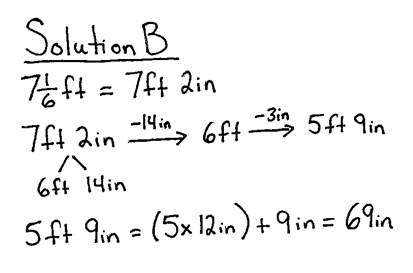 Solution B
7 1/6 ft = 7ft 2in
7ft 2in —-14in→ 6ft —-3in→ 5ft 9in
6ft 14in
5ft 9in = (5x12in) + 9in = 69in